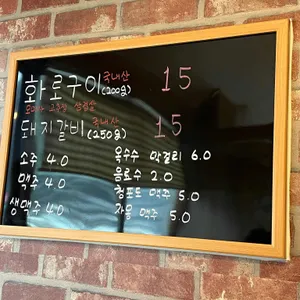 화로구이 국내산 (200g) 15
고추장 삼겹살
돼지갈비 국내산 (250g) 15
소주 4.0
맥주 4.0
생맥주 4.0
옥수수 막걸리 6.0
음료수 2.0
청포도 맥주 5.0
자몽 맥주 5.0